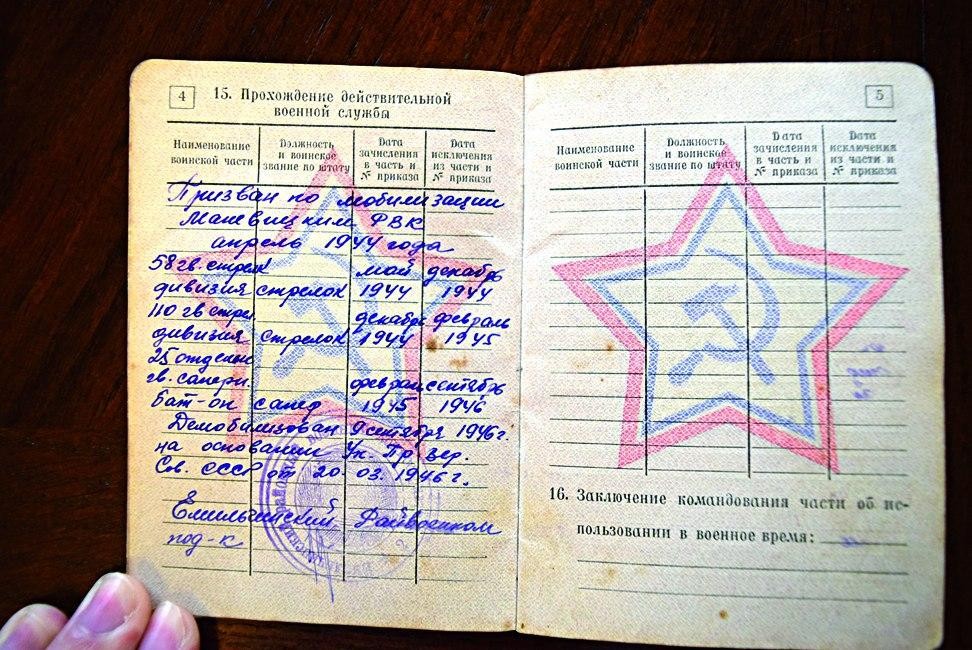 4
15. Прохождение действительной
военной службы
Наименование
воинской части
Должность
и воинское
звание по штату
Дата
зачисления
в часть и
№ приказа
Дата
исключения
из части и
№ приказа
Призван по мобилизации
Маневицким РВК
апрель 1944 года
58 гв. стрелк май декабрь
дивизия стрелок 1944 1944
110 гв стрел. декабрь февраль
дивизия стрелок 1944 1945
25 отдельн
гв. саперн. феврал сентябрь
бат-он сапер 1945 1946
Демобилизован 9 сентября 1946г.
на основании Ук. През. Вер.
Сов. СССР от 20. 03. 1946г.
Емильчинский Райвоенком
под-к
5
Наименование
воинской части
Должность
и воинское
звание по штату
Дата
зачисления
в часть и
№ приказа
Дата
исключения
из части и
№ приказа
16. Заключение командования части об ис-
пользовании в военное время: